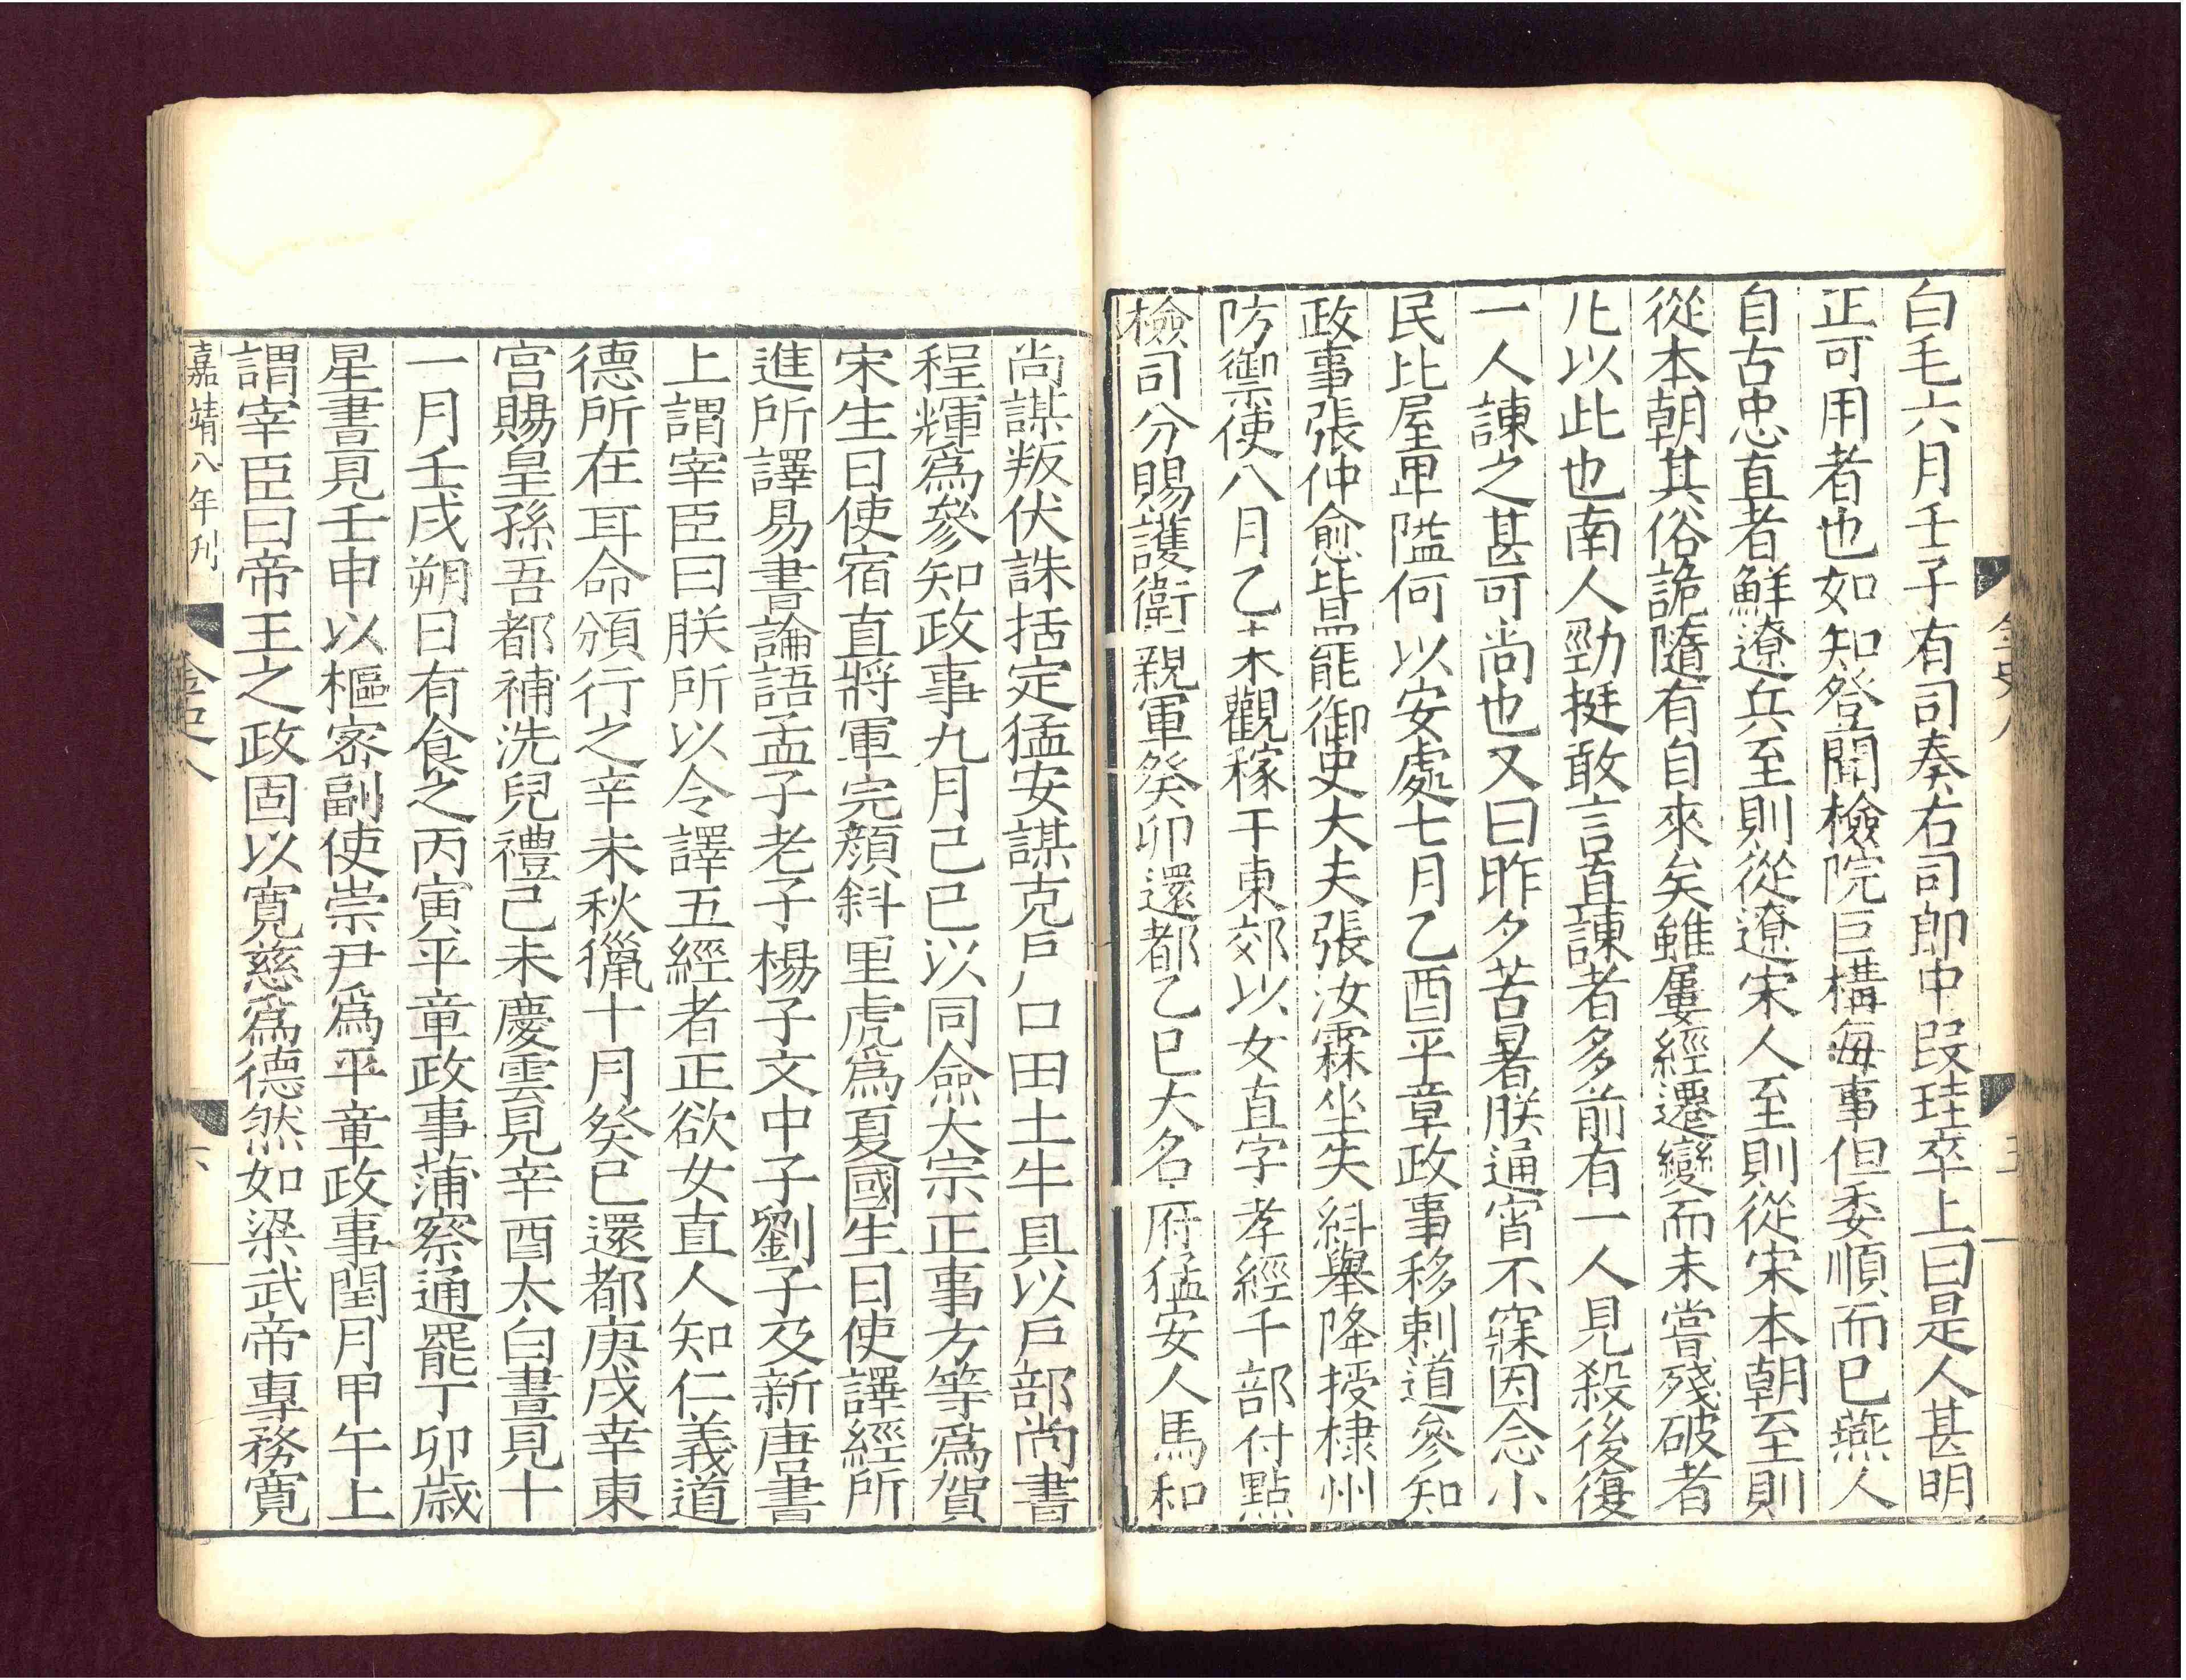 金史八
五
白毛六月壬子有司奏右司郎中叚珪卒上曰是人甚明
正可用者也如知登聞檢院巨構每事但委順而已燕人
自古忠直者鮮遼兵至則從遼宋人至則從宋本朝至則
從本朝其俗詭隨有自來矣雖屢經遷變而未嘗殘破者
凡以此也南人勁挺敢言直諫者多前有一人見殺後復
一人諫之甚可尚也又曰昨夕苦暑朕通宵不寐因念小
民比屋卑隘何以安處七月乙酉平章政事移剌道參知
政事張仲愈皆罷御史大夫張汝霖坐失糾舉降授棣州
防禦使八月乙未觀稼于東郊以女直字孝經千部付點
檢司分賜護衛親軍癸卯還都乙巳大名府猛安人馬和
尚謀叛伏誅括定猛安謀克戶口田土牛具以戶部尚書
程輝爲參知政事九月己巳以同僉大宗正事方等爲賀
宋生日使宿直將軍完顏斜里虎爲夏國生日使譯經所
進所譯易書論語孟子老子楊子文中子劉子及新唐書
上謂宰臣曰朕所以令譯五經者正欲女直人知仁義道
德所在耳命頒行之辛未秋獵十月癸巳還都庚戌幸東
宮賜皇孫吾都補洗兒禮己未慶雲見辛酉太白晝見十
一月壬戌朔日有食之丙寅平章政事蒲察通罷丁卯歲
星晝見壬申以樞密副使崇尹爲平章政事閏月甲午上
謂宰臣曰帝王之政固以寬慈爲德然如梁武帝專務寬
嘉靖八年刊
金史八
六